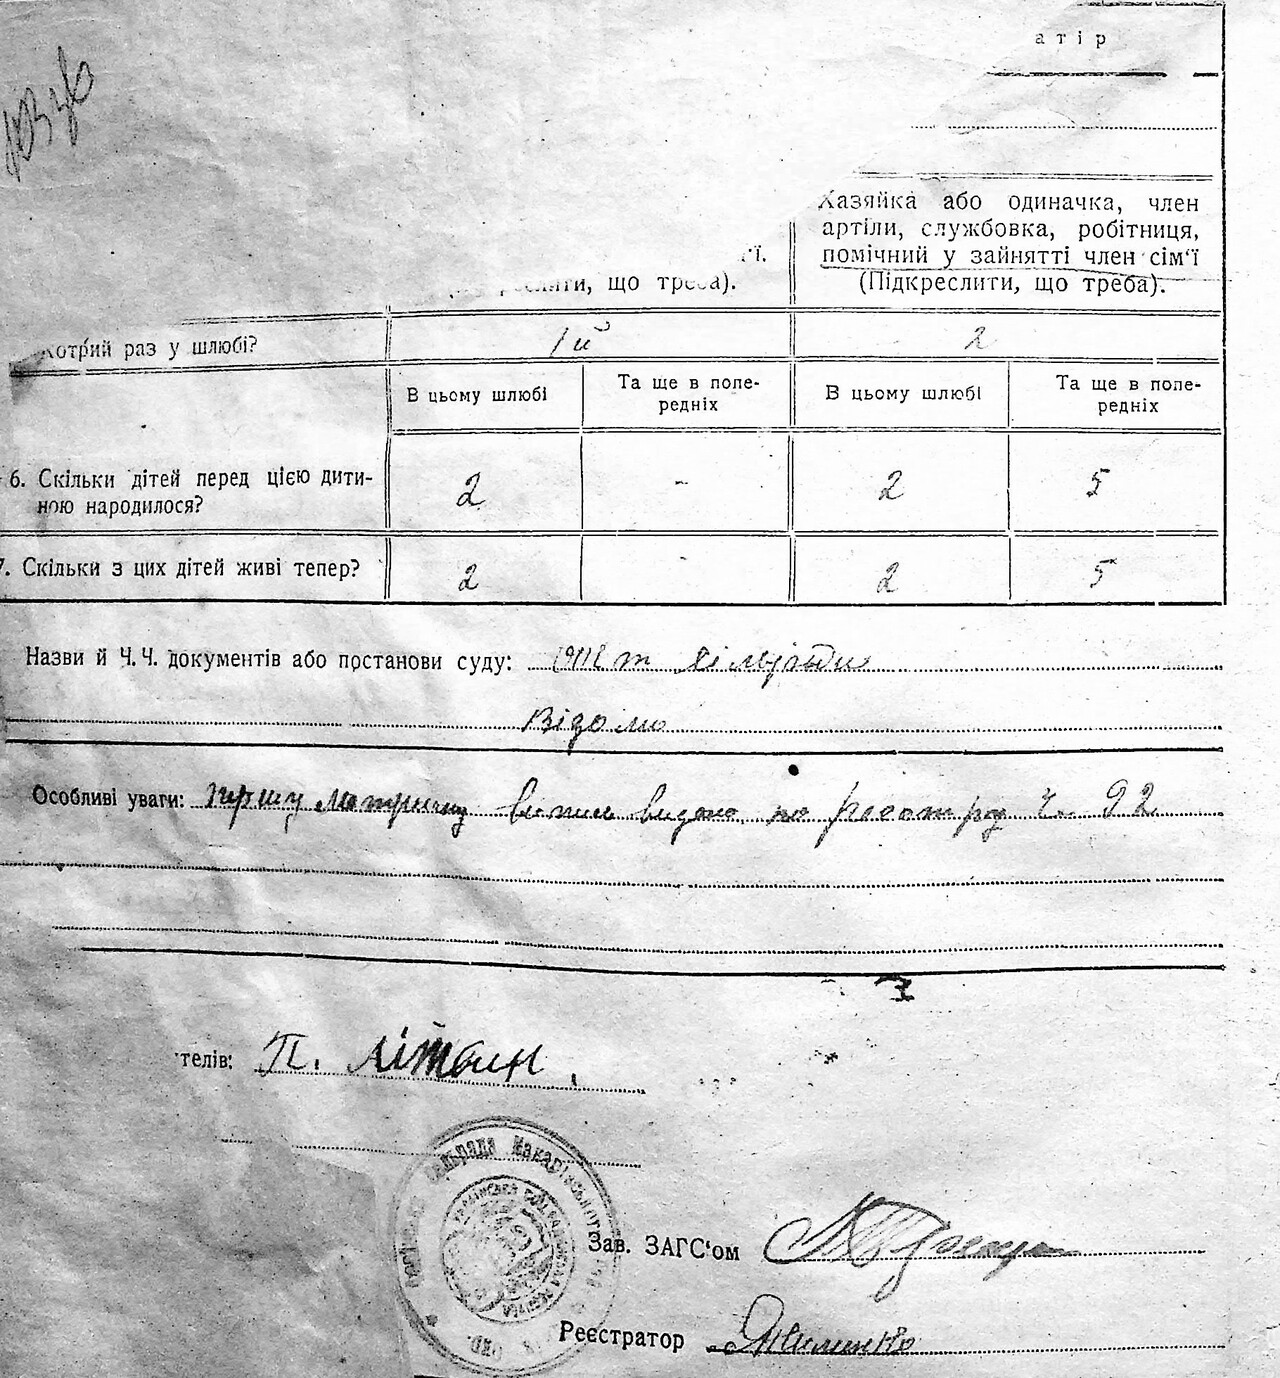 атір
Хазяйка або одиначка, член
артіли, службовка, робітниця,
помічний у зайнятті член сім'ї
(Підкреслити, що треба).
ії.
що треба).
Котрий раз у шлюбі?
1й
2
В цьому шлюбі
Та ще в попе-
редніх
В цьому шлюбі
Та ще в попе-
редніх
6. Скільки дітей перед цією дити-
ною народилося?
2
-
2
5
7. Скільки з цих дітей живі тепер?
2
-
2
5
Назви й Ч.Ч. документів або постанови суду:
Відомо
Особливі уваги: першу метричну випис видано по реєстру Ч. 92
телів: П. Літвин
Сільрада Макарівського
Зав. ЗАГС'ом
Реєстратор